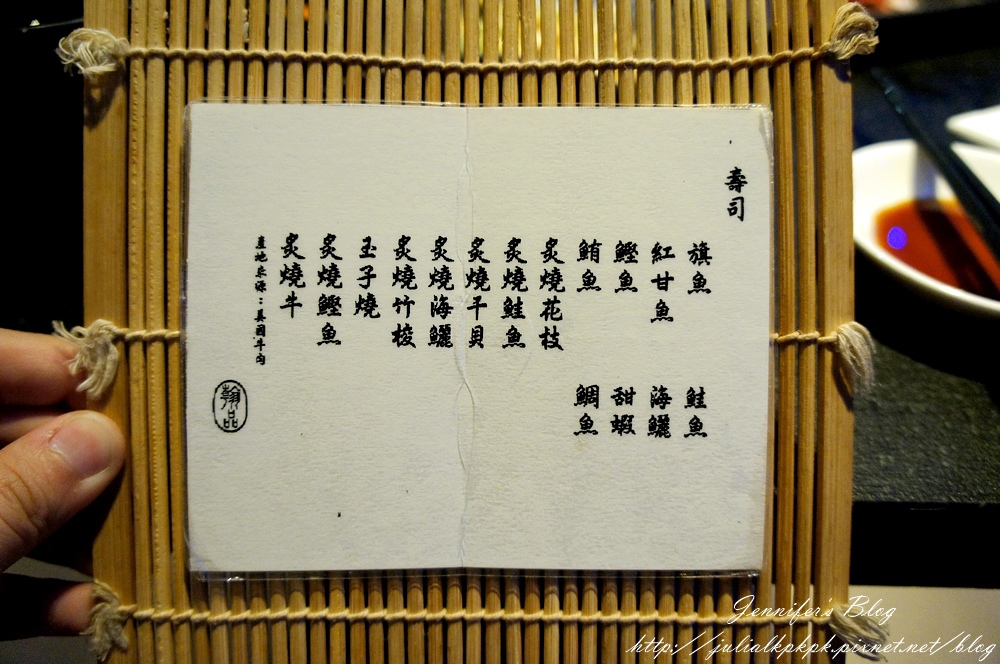 壽司
旗魚 鮭魚
紅甘魚 海鱺
鰹魚 甜蝦
鮪魚 鯛魚
炙燒花枝
炙燒鮭魚
炙燒干貝
炙燒海鱺
炙燒竹梭
玉子燒
炙燒鰹魚
炙燒牛
產地來源：美國牛肉
翰品
Jennifer's Blog
http://julialkpkpk.pixnet.net/blog